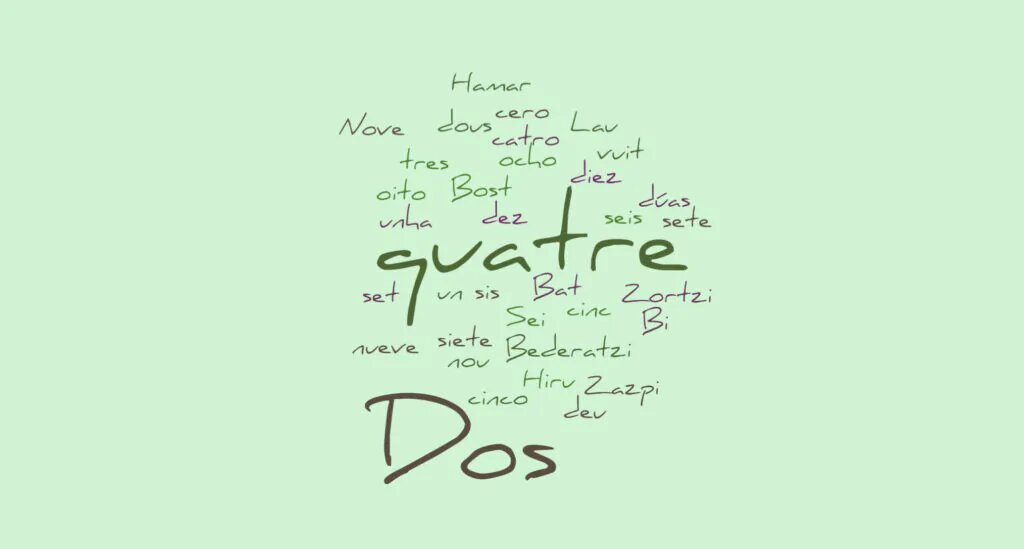 Hamar
cero
Nove dous Lau
catro
tres ocho vuit
diez
oito Bost
dúas
unha dez seis sete
quatre
set un sis Bat Zortzi
Sei cinc Bi
nueve siete Bederatzi
nou
Hiru Zazpi
cinco deu
Dos